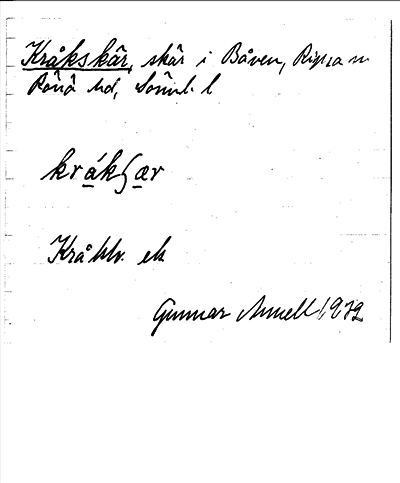 Kråkskär, skär i Båven, Ripsa sn
Rönö hd, Söml. l
krákʃær
Kråkhv. ek
Gunnar Annell 1932